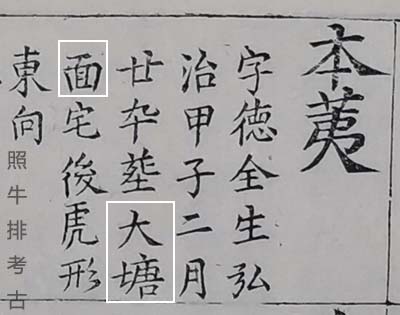 本荑
字德全生弘
治甲子二月
廿卒塟大塘
面宅後虎形
東向
照牛排考古